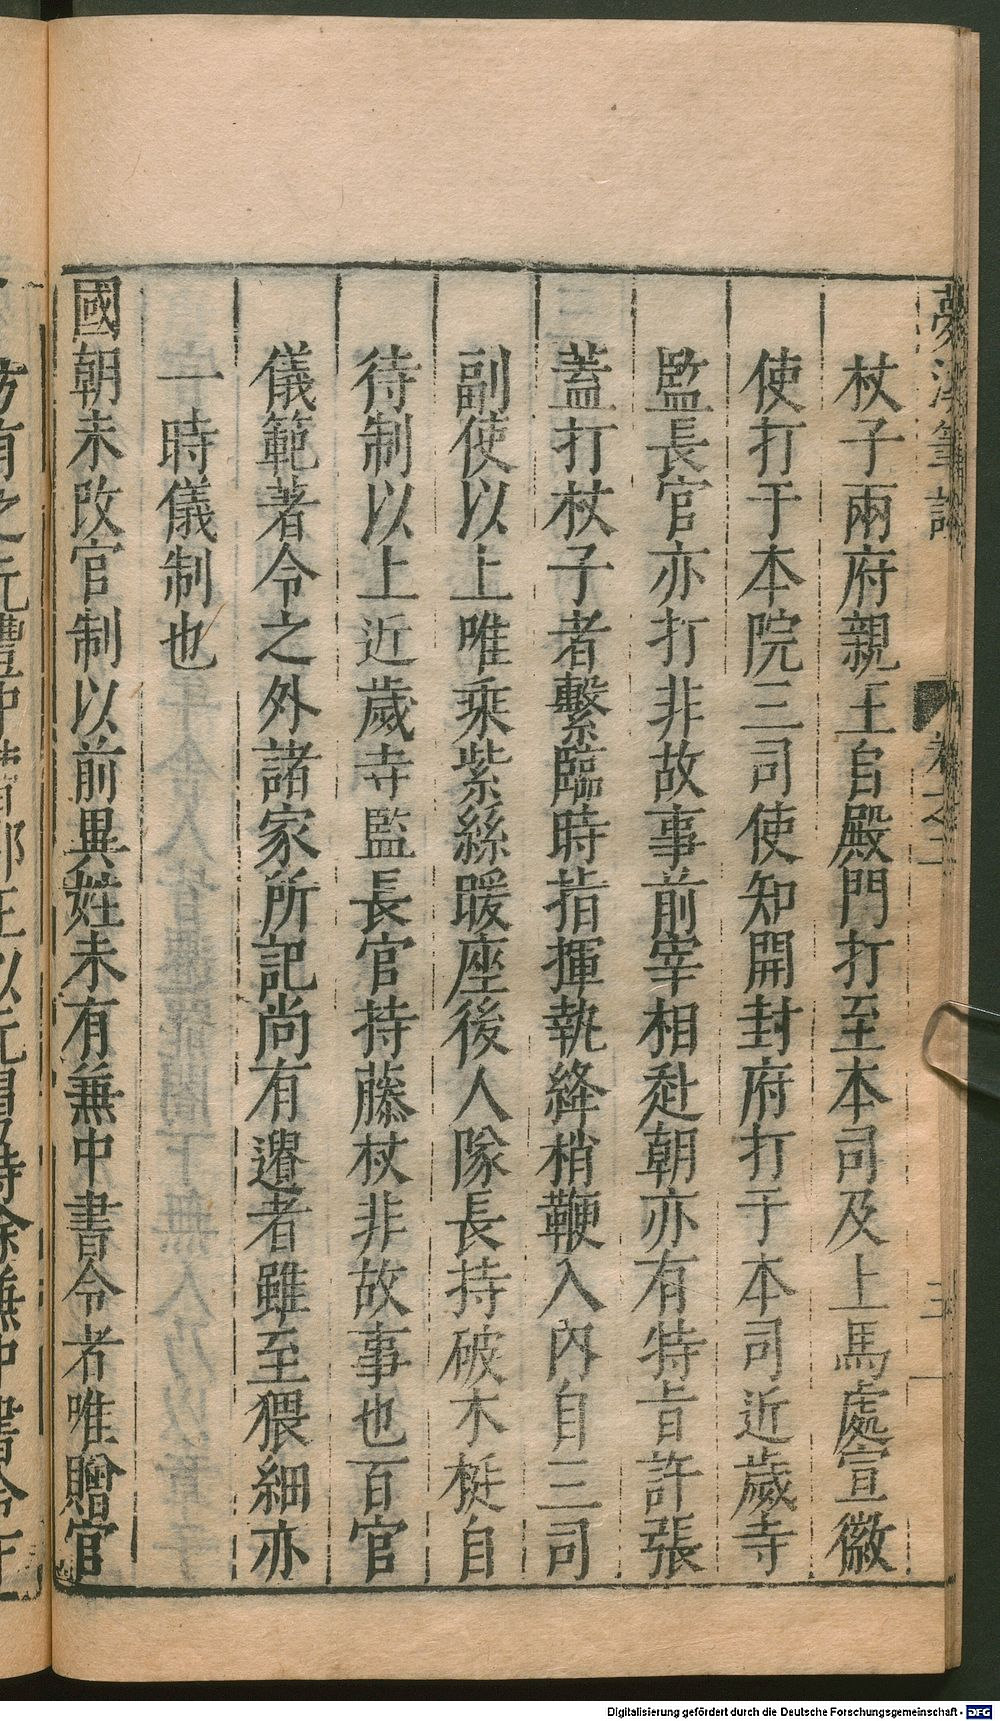 夢溪筆談 卷之二 三
杖子兩府親王自殿門打至本司及上馬處宣徽
使打于本院三司使知開封府打于本司近歲寺
監長官亦打非故事前宰相赴朝亦有特旨許張
蓋打杖子者繫臨時指揮執絳梢鞭入內自三司
副使以上唯乘紫絲暖座後人隊長持破木梃自
待制以上近歲寺監長官持藤杖非故事也百官
儀範著令之外諸家所記尚有遺者雖至猥細亦
一時儀制也
國朝未改官制以前異姓未有兼中書令者唯贈官
Digitalisierung gefördert durch die Deutsche Forschungsgemeinschaft - DFG